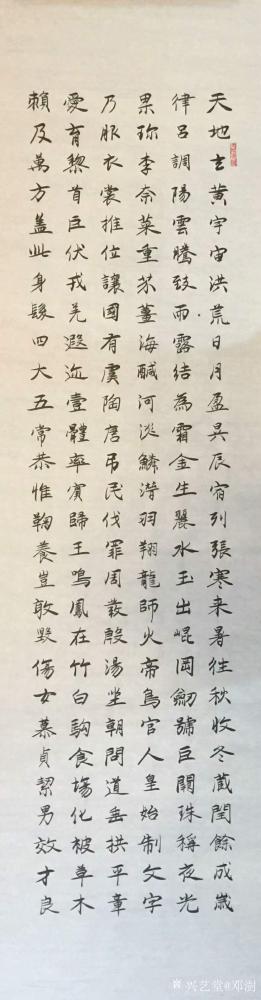 天地玄黄宇宙洪荒日月盈昃辰宿列張寒来暑往秋收冬蔵閏餘成歳
律吕調陽雲騰致雨露結為霜金生麗水玉出崐岡劒號巨闕珠稱夜光
果珍李奈菜重芥薑海鹹河淡鱗潜羽翔龍師火帝鳥官人皇始制文字
乃服衣裳推位讓國有虞陶唐弔民伐罪周發殷湯坐朝問道垂拱平章
愛育黎首臣伏戎羌遐迩壹體率賓歸王鳴鳳在竹白駒食場化被草木
賴及萬方盖此身髮四大五常恭惟鞠養豈敢毀傷女慕貞絜男效才良
兴艺堂@邓澍